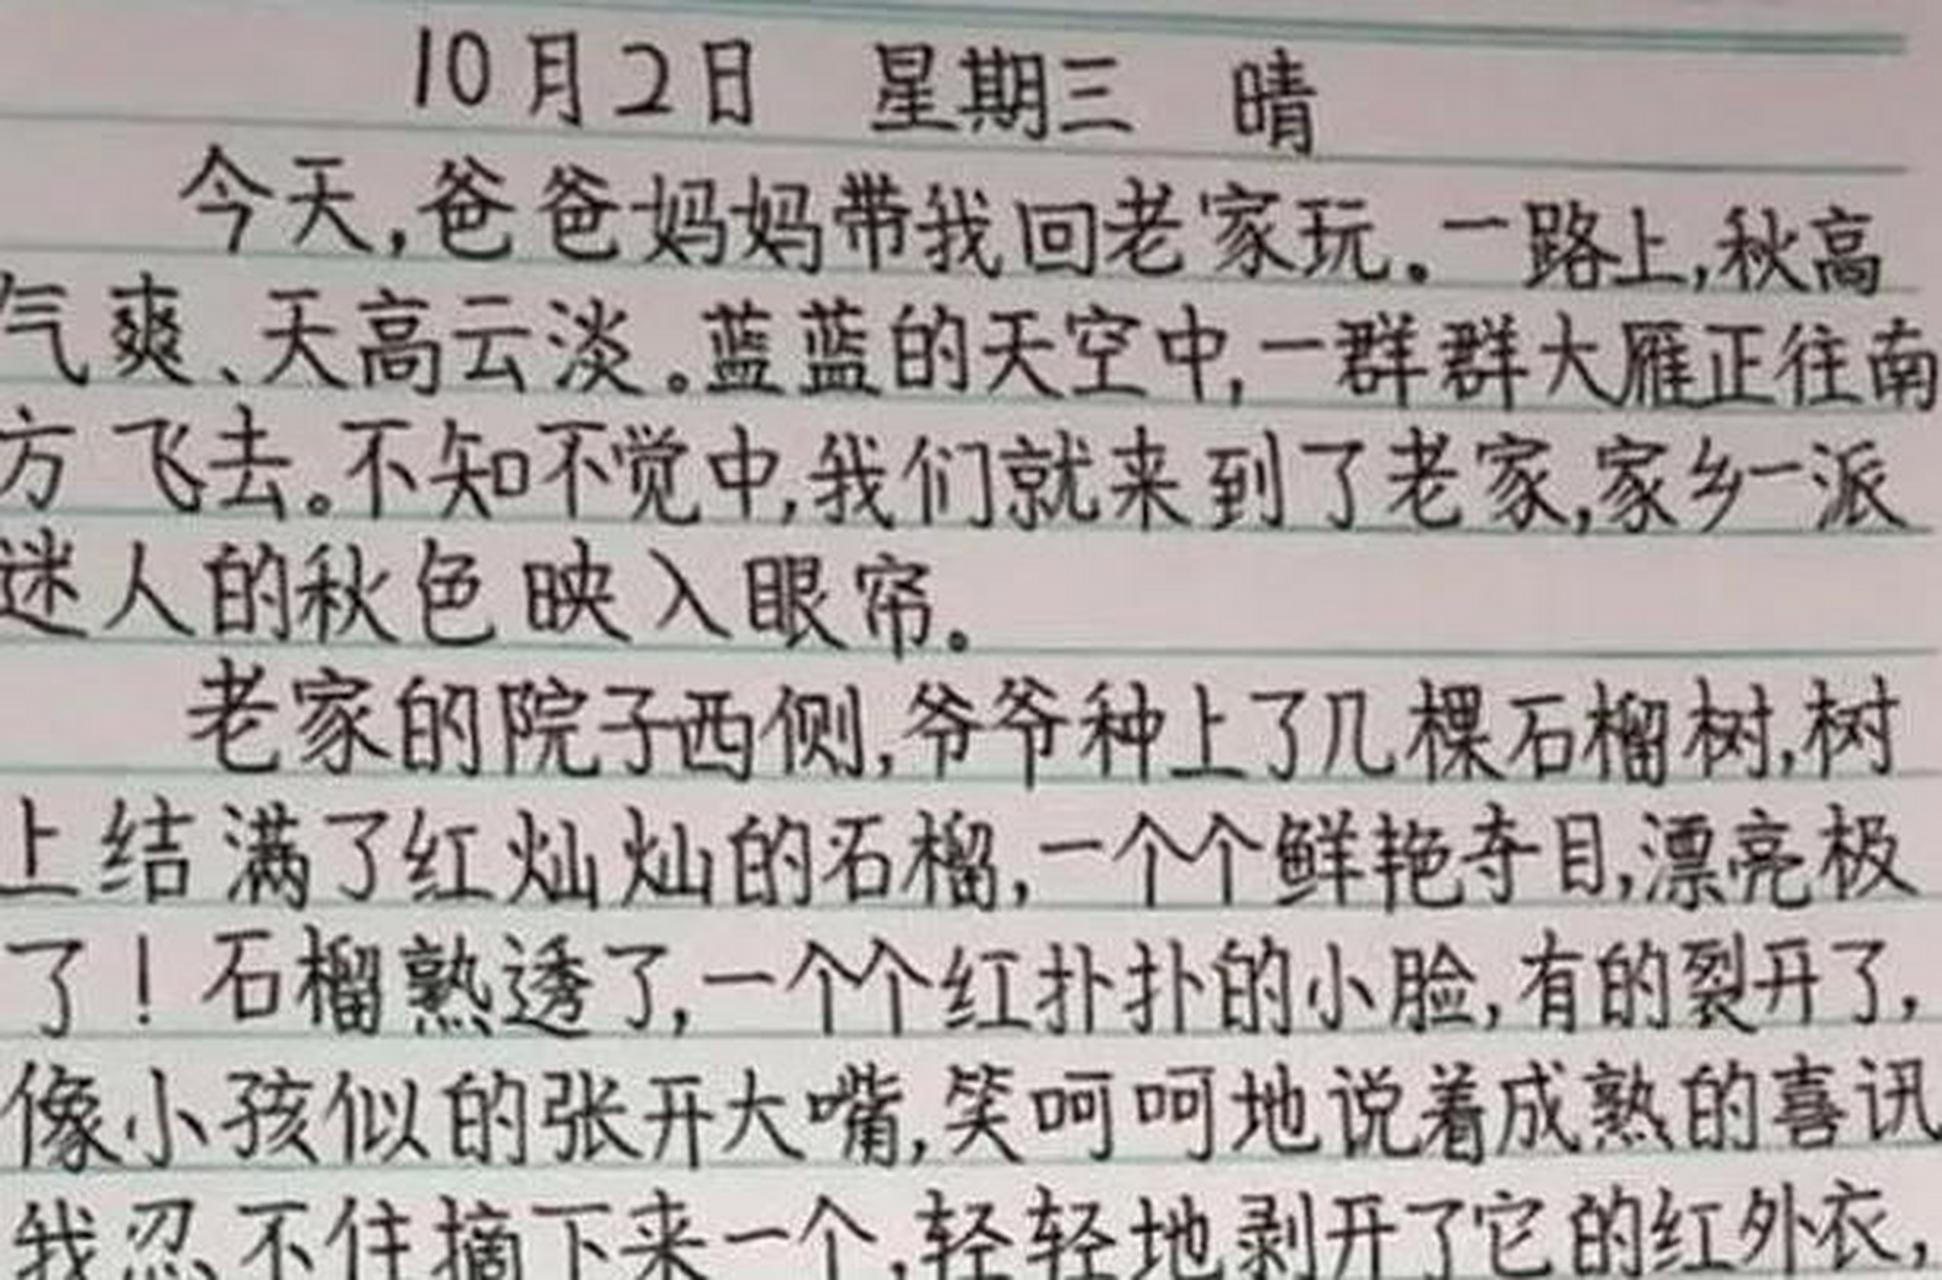 10月2日 星期三 晴
今天,爸爸妈妈带我回老家玩。一路上,秋高
气爽、天高云淡。蓝蓝的天空中,一群群大雁正往南
方飞去。不知不觉中,我们就来到了老家,家乡一派
迷人的秋色映入眼帘。
老家的院子西侧,爷爷种上了几棵石榴树,树
上结满了红灿灿的石榴,一个个鲜艳夺目,漂亮极
了!石榴熟透了,一个个红扑扑的小脸,有的裂开了,
像小孩似的张开大嘴,笑呵呵地说着成熟的喜讯
我忍不住摘下来一个,轻轻地剥开了它的红外衣,